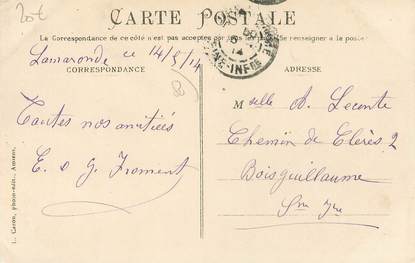 20€
CARTE POSTALE
La Correspondance de ce côté n'est pas acceptée par tous les pays étrangers. Se renseigner à la poste
CORRESPONDANCE
ADRESSE
Lamaronde ce 14/5/14
Toutes nos amitiés
E. & G. Froment
Melle A. Leconte
Chemin de Clères 2
Boisguillaume
Sne Inre
L. Caron, photo-édit., Aumale
INFRE